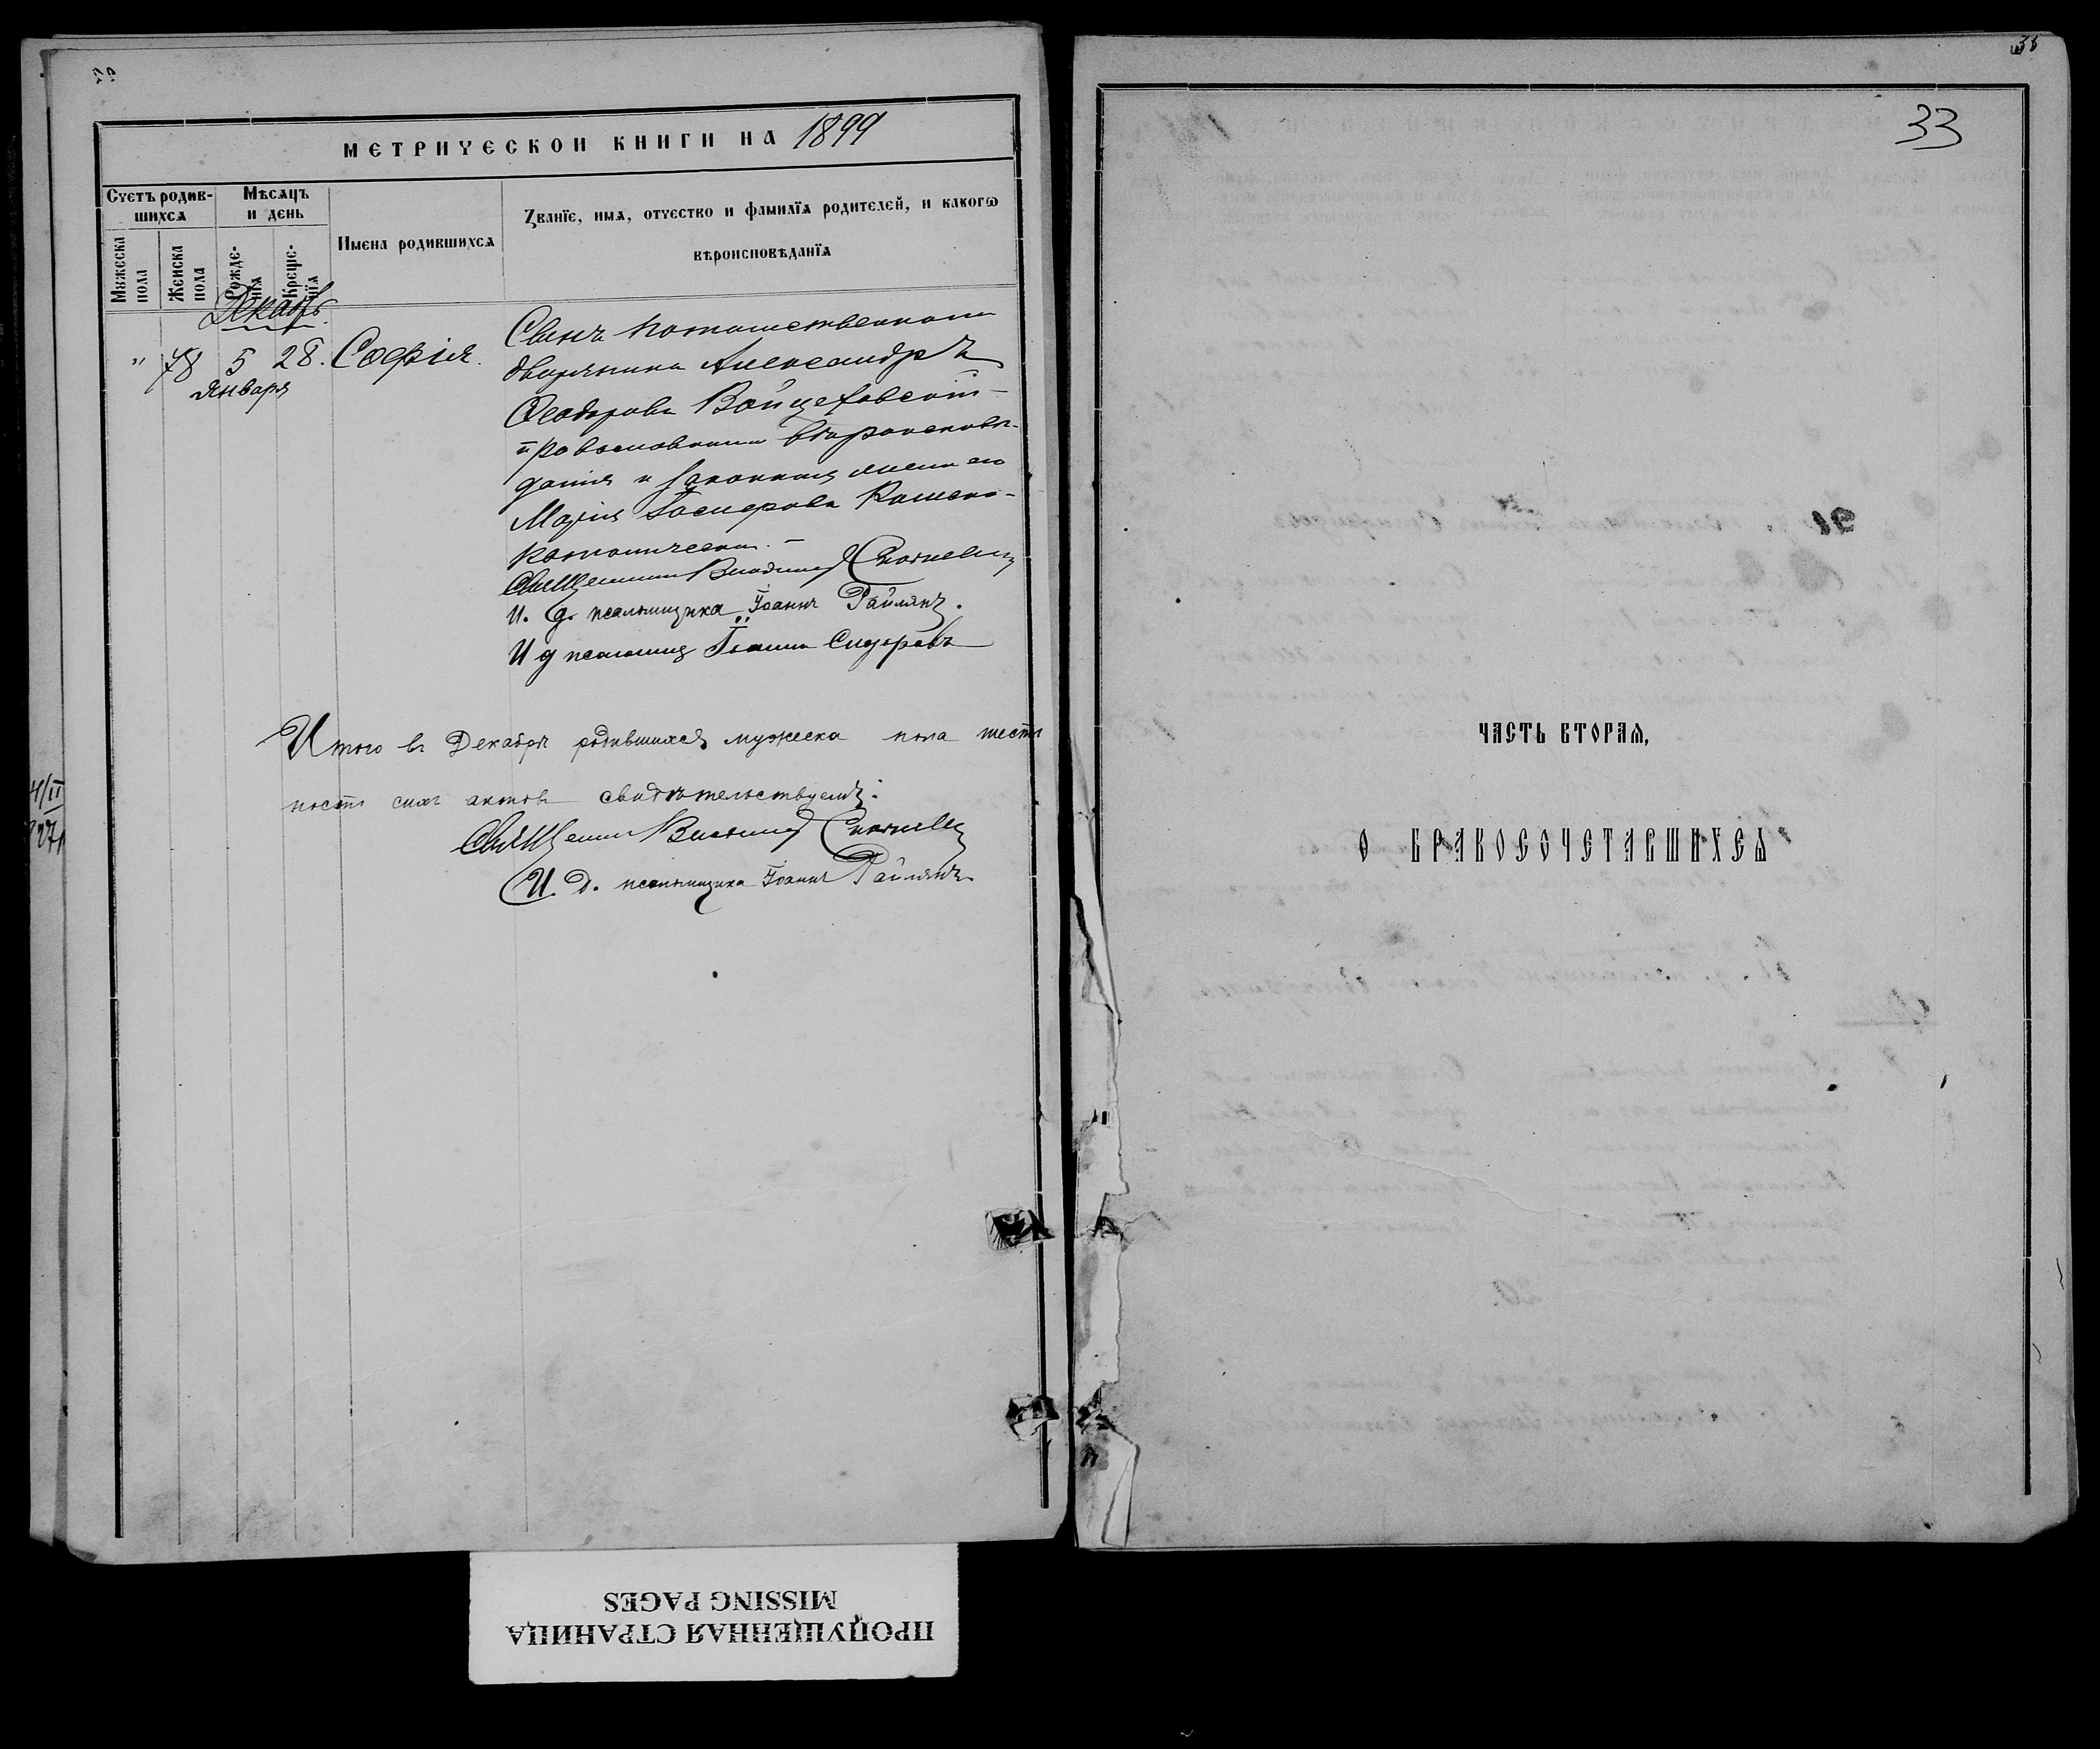 МЕТРИЧЕСКОИ КНИГИ НА 1899
Счетъ родив-
шихсѧ
Мѣсѧцъ
и день
Имена родившихсѧ
Званїе, имѧ, отчество и фамилїѧ родителей, и какогѡ
вѣроисповѣданїѧ
Мꙋжеска
пола
Женска
пола
Рожде-
нїѧ
Креще-
нїѧ
Декабрь.
" 78 5 28. Софія.
Января
Сынъ потомственнаго
дворянина Александръ
Ѳеодоровъ Войцеховскій
православнаго вѣроисповѣ-
данія и законная жена его
Марія
католическаго. –
Священникъ
И. д. псаломщика Іоаннъ Райлянъ.
И д псаломщ Іоаннъ Сидоровъ
Итого въ Декабрѣ родившихся мужеска пола шесть
ность сихъ актовъ свидѣтельствуемъ:
Священникъ
И. д. псаломщика Іоаннъ Райлянъ
4/II
27
33
ЧАСТЬ ВТОРАѦ,
О БРАКОСОЧЕТАВШИХСѦ
ПРОПУЩЕННАЯ СТРАНИЦА
MISSING PAGES